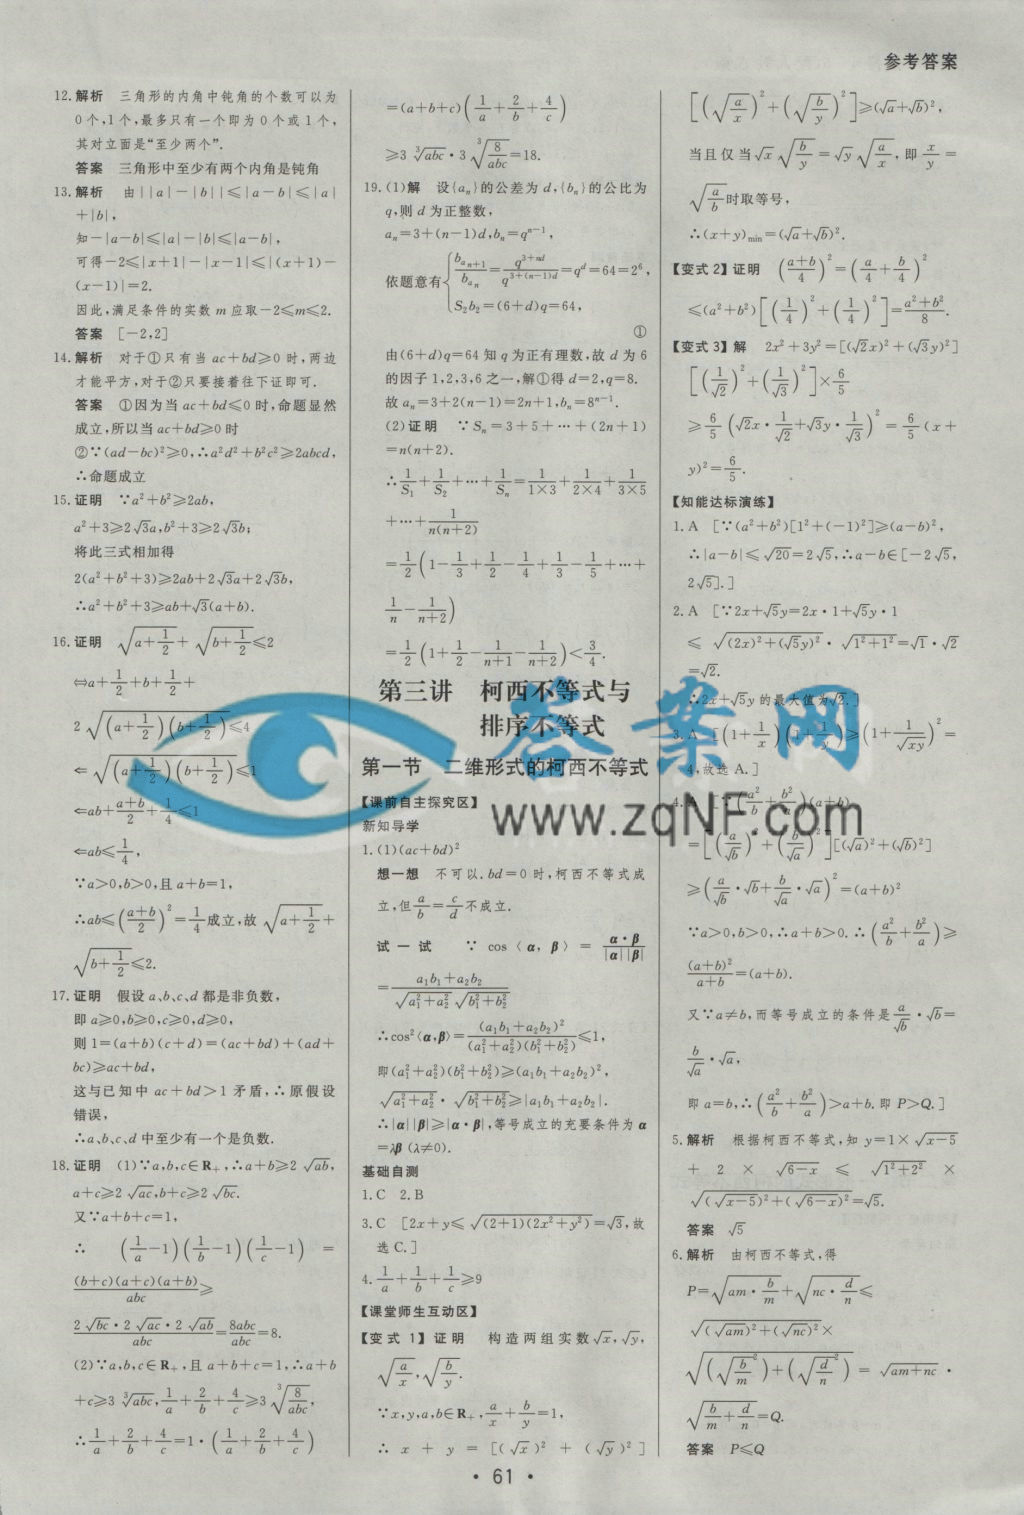 参考答案
12.解析 三角形的内角中钝角的个数可以为
0个,1个,最多只有一个即为0个或1个,
其对立面是“至少两个”.
答案 三角形中至少有两个内角是钝角
13.解析 由||a|-|b||≤|a-b|≤|a|
+|b|,
知-|a-b|≤|a|-|b|≤|a-b|,
可得-2≤|x+1|-|x-1|≤|(x+1)-
(x-1)|=2.
因此,满足条件的实数m应取-2≤m≤2.
答案 [-2,2]
14.解析 对于①只有当ac+bd≥0时,两边
才能平方,对于②只要接着往下证即可.
答案 ①因为当ac+bd≤0时,命题显然
成立,所以当ac+bd≥0时
②∵(ad-bc)²≥0,∴a²d²+b²c²≥2abcd,
∴命题成立
15.证明 ∵a²+b²≥2ab,
a²+3≥2√3a,b²+3≥2√3b;
将此三式相加得
2(a²+b²+3)≥2ab+2√3a+2√3b,
∴a²+b²+3≥ab+√3(a+b).
16.证明 √(a+1/2)+√(b+1/2)≤2
⇔a+1/2+b+1/2+
2√((a+1/2)(b+1/2))≤4
⇐√((a+1/2)(b+1/2))≤1
⇐ab+(a+b)/2+1/4≤1
⇐ab≤1/4,
∵a>0,b>0,且a+b=1,
∴ab≤((a+b)/2)²=1/4成立,故√(a+1/2)+
√(b+1/2)≤2.
17.证明 假设a、b、c、d都是非负数,
即a≥0,b≥0,c≥0,d≥0,
则1=(a+b)(c+d)=(ac+bd)+(ad+
bc)≥ac+bd,
这与已知中ac+bd>1矛盾,∴原假设
错误,
∴a、b、c、d中至少有一个是负数.
18.证明 (1)∵a,b,c∈R₊,∴a+b≥2√ab,
a+c≥2√ac,b+c≥2√bc.
又∵a+b+c=1,
∴ (1/a-1)(1/b-1)(1/c-1) =
(b+c)(a+c)(a+b)/abc≥
2√bc·2√ac·2√ab/abc=8abc/abc=8.
(2)∵a,b,c∈R₊,且a+b+c=1,∴a+b
+c≥3∛abc,1/a+2/b+4/c≥3∛(8/abc),
∴1/a+2/b+4/c=1·(1/a+2/b+4/c)
=(a+b+c)(1/a+2/b+4/c)
≥3∛abc·3∛(8/abc)=18.
19.(1)解 设{aₙ}的公差为d,{bₙ}的公比为
q,则d为正整数,
aₙ=3+(n-1)d,bₙ=qⁿ⁻¹,
依题意有{b_{aₙ₊₁}/b_{aₙ}=q^(3+nd)/q^(3+(n-1)d)=q^d=64=2⁶,
S₂b₂=(6+d)q=64,
①
由(6+d)q=64知q为正有理数,故d为6
的因子1,2,3,6之一,解①得d=2,q=8.
故aₙ=3+2(n-1)=2n+1,bₙ=8ⁿ⁻¹.
(2)证明 ∵Sₙ=3+5+…+(2n+1)
=n(n+2).
∴1/S₁+1/S₂+…+1/Sₙ=1/(1×3)+1/(2×4)+1/(3×5)
+…+1/(n(n+2))
=1/2(1-1/3+1/2-1/4+1/3-1/5+…+
1/n-1/(n+2))
=1/2(1+1/2-1/(n+1)-1/(n+2))<3/4.
第三讲 柯西不等式与
排序不等式
第一节 二维形式的柯西不等式
【课前自主探究区】
新知导学
1.(1)(ac+bd)²
想一想 不可以.bd=0时,柯西不等式成
立,但a/b=c/d不成立.
试一试 ∵cos〈α,β〉=α·β/(|α||β|)
=(a₁b₁+a₂b₂)/(√(a₁²+a₂²)√(b₁²+b₂²))
∴cos²〈α,β〉=(a₁b₁+a₂b₂)²/((a₁²+a₂²)(b₁²+b₂²))≤1,
即(a₁²+a₂²)(b₁²+b₂²)≥(a₁b₁+a₂b₂)²,
√(a₁²+a₂²)·√(b₁²+b₂²)≥|a₁b₁+a₂b₂|.
∴|α||β|≥|α·β|,等号成立的充要条件为α
=λβ(λ≠0).
基础自测
1.C 2.B
3.C [2x+y≤√((2+1)(2x²+y²))=√3,故
选C.]
4.1/a+1/b+1/c≥9
【课堂师生互动区】
【变式1】证明 构造两组实数√x,√y,
√(a/x),√(b/y).
∵x,y,a,b∈R₊,a/x+b/y=1,
∴x+y=[(√x)²+(√y)²]
[(√(a/x))²+(√(b/y))²]≥(√a+√b)²,
当且仅当√x√(b/y)=√y√(a/x),即x/y=
√(a/b)时取等号,
∴(x+y)min=(√a+√b)².
【变式2】证明 ((a+b)/4)²=(a/4+b/4)²
≤(a²+b²)[(1/4)²+(1/4)²]=(a²+b²)/8.
【变式3】解 2x²+3y²=[(√2x)²+(√3y)²]
[(1/√2)²+(1/√3)²]×6/5
≥6/5(√2x·1/√2+√3y·1/√3)²=6/5(x+
y)²=6/5.
【知能达标演练】
1.A [∵(a²+b²)[1²+(-1)²]≥(a-b)²,
∴|a-b|≤√20=2√5,∴a-b∈[-2√5,
2√5].]
2.A [∵2x+√5y=2x·1+√5y·1
≤√((2x)²+(√5y)²)·√(1²+1²)=√1·√2
=√2.
∴2x+√5y的最大值为√2.]
3.A [(1+1/x)(1+1/y)≥(1+1/√xy)²=
4,故选A.]
4.A [∵(a²/b+b²/a)(a+b)
=[(a/√b)²+(b/√a)²][(√a)²+(√b)²]
≥(a/√b·√b+b/√a·√a)²=(a+b)²
∵a>0,b>0,∴a+b>0.∴(a²/b+b²/a)≥
(a+b)²/(a+b)=(a+b).
又∵a≠b,而等号成立的条件是a/√b·√b=
b/√a·√a,
即a=b,∴(a²/b+b²/a)>a+b.即P>Q.]
5.解析 根据柯西不等式,知y=1×√(x-5)
+2×√(6-x)≤√(1²+2²)×
√((√(x-5))²+(√(6-x))²)=√5.
答案 √5
6.解析 由柯西不等式,得
P=√(am·b/m)+√(nc·d/n)≤
√((√am)²+(√nc)²)×
√((√(b/m))²+(√(d/n))²)=√(am+nc)·
√(b/m+d/n)=Q.
答案 P≤Q
·61·
答案网
www.zqNF.com